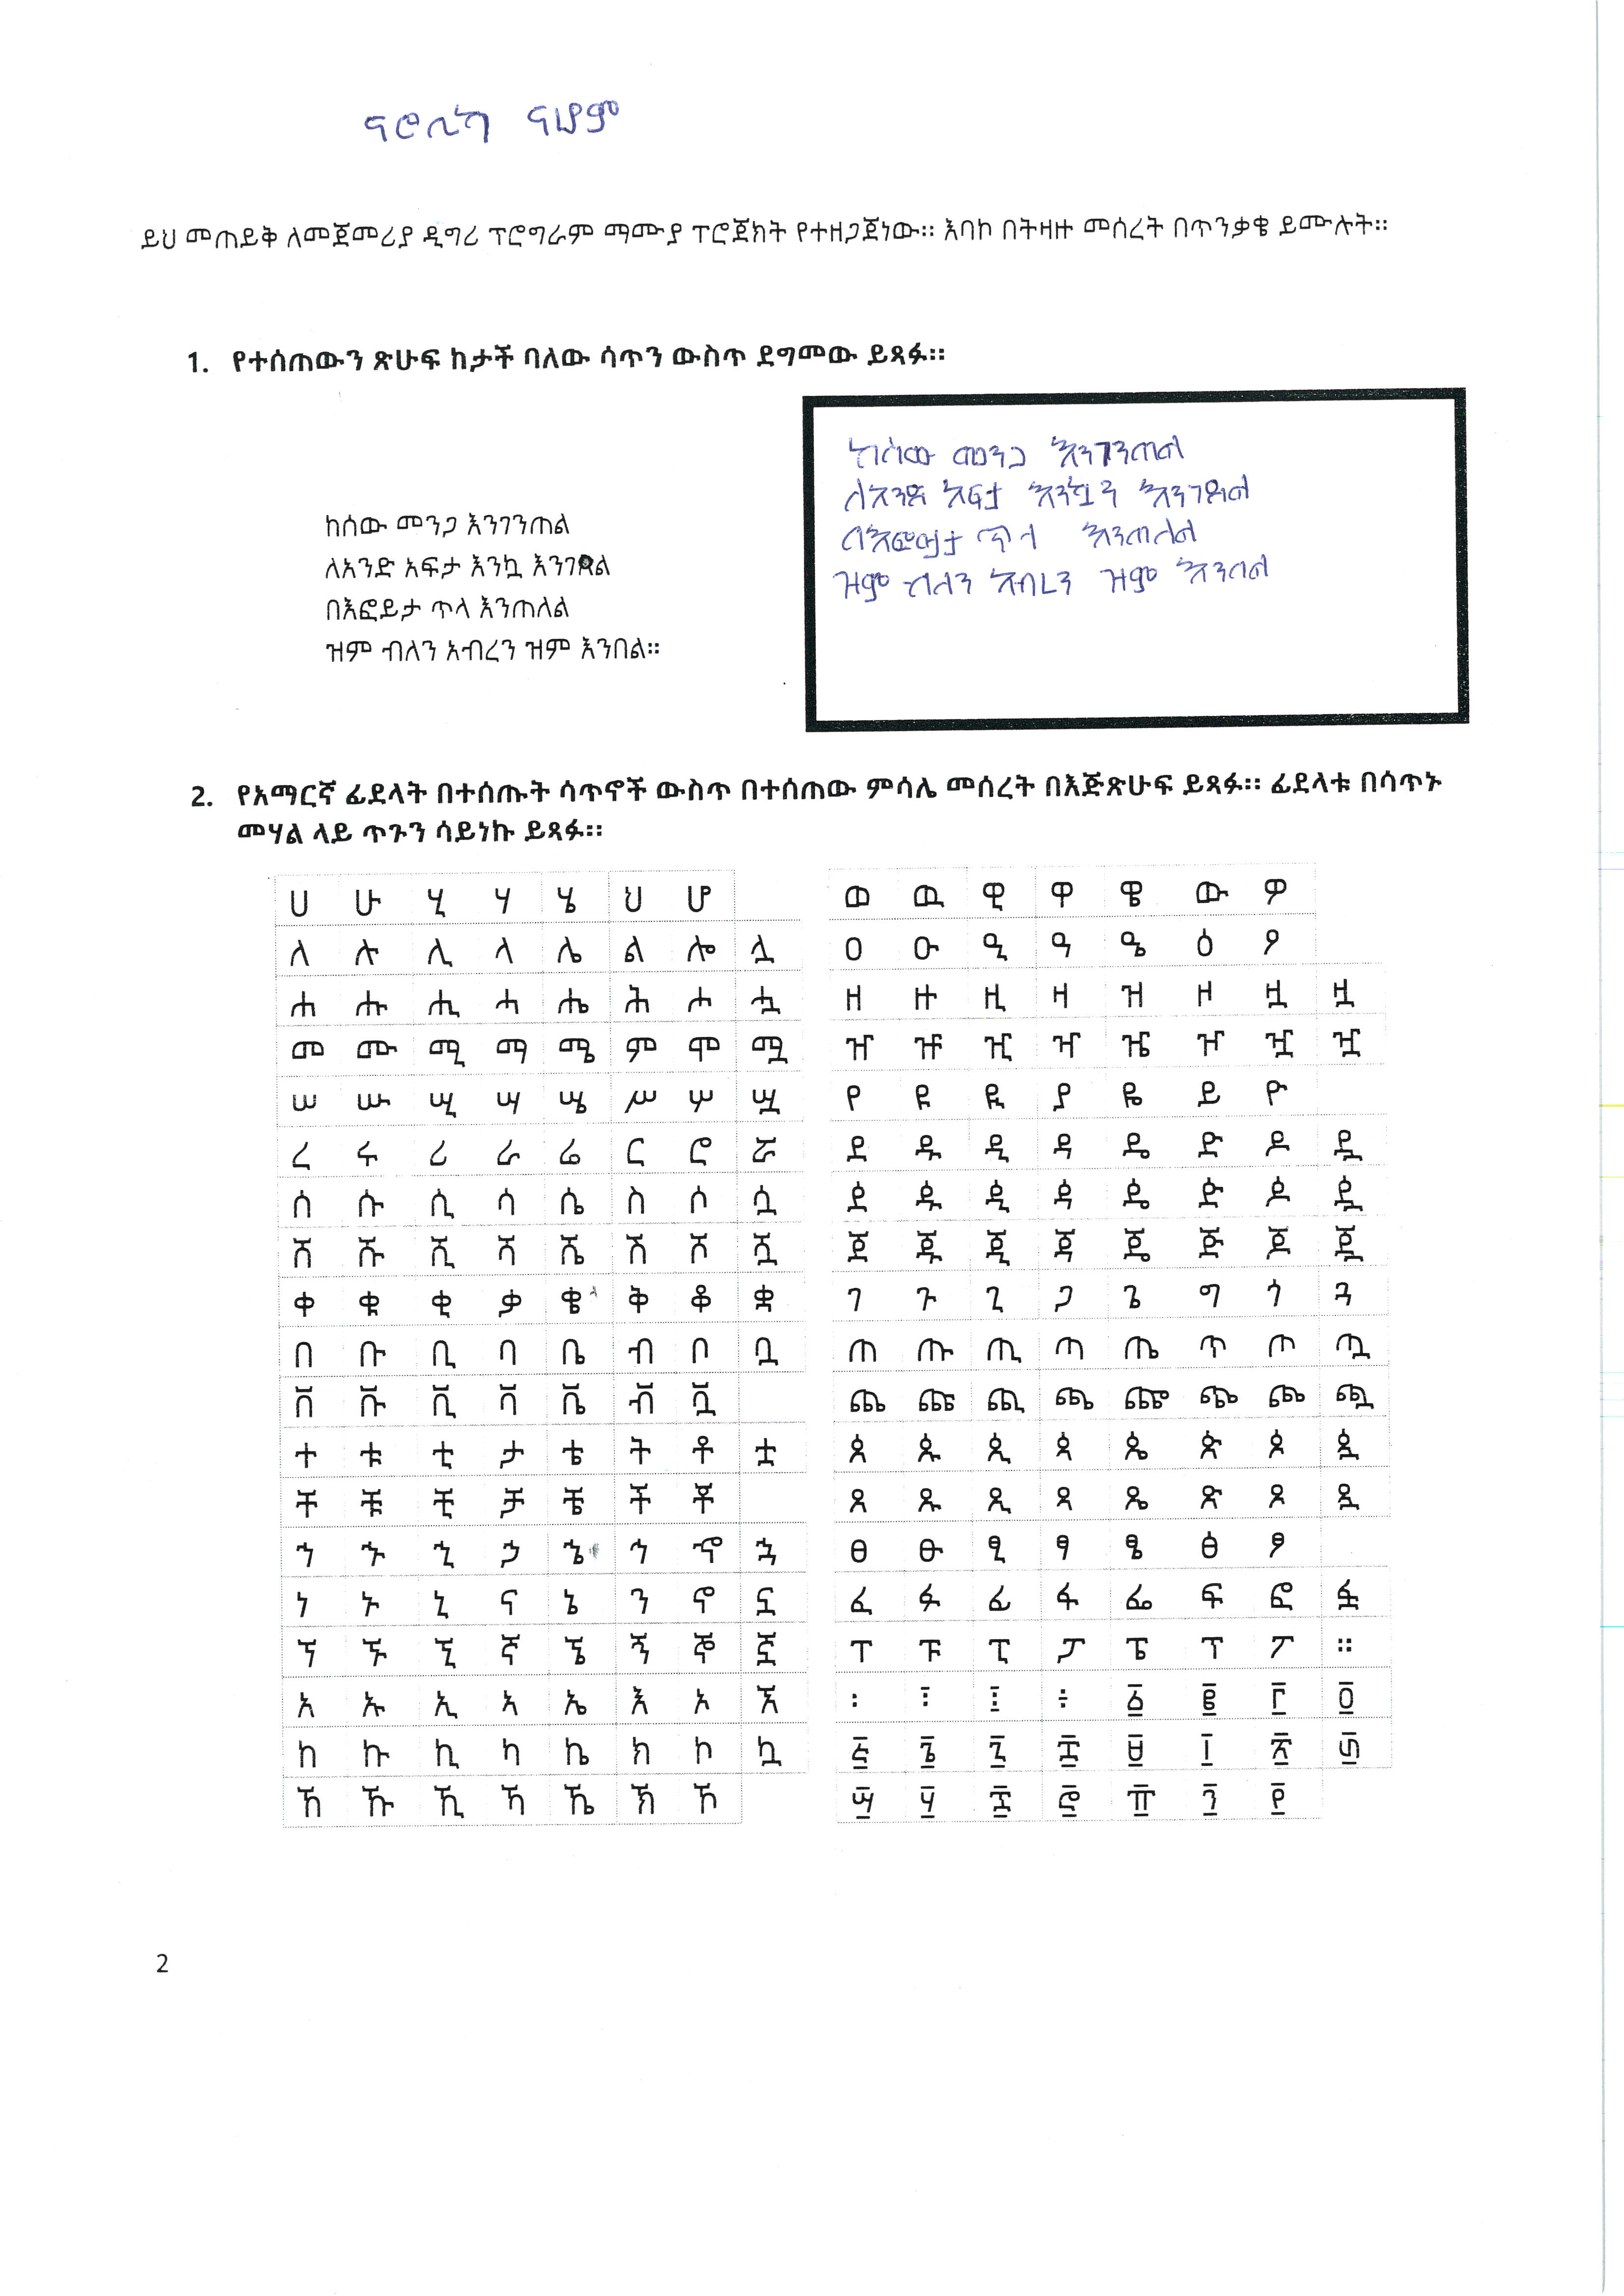 ናሮቤካ ናሆም
ይህ መጠይቅ ለመጀመሪያ ዲግሪ ፕሮግራም ማሙያ ፕሮጀክት የተዘጋጀነው። እባኮ በትዛዙ መሰረት በጥንቃቄ ይሙሉት።
1. የተሰጠውን ጽሁፍ ከታች ባለው ሳጥን ውስጥ ደግመው ይጻፉ።
ከሰው መንጋ እንገንጠል
ለአንድ አፍታ እንኳ እንገዳል
በእፎይታ ጥላ እንጠለል
ዝም ብለን አብረን ዝም እንበል።
ከሰው መንጋ እንገንጠል
ለአንድ አፍታ እንኳን እንገዳል
በእፎይታ ጥላ እንጠለል
ዝም ብለን አብረን ዝም እንበል
2. የአማርኛ ፊደላት በተሰጡት ሳጥኖች ውስጥ በተሰጠው ምሳሌ መሰረት በእጅጽሁፍ ይጻፉ። ፊደላቱ በሳጥኑ
መሃል ላይ ጥጉን ሳይነኩ ይጻፉ።
ሀ ሁ ሂ ሃ ሄ ህ ሆ
ለ ሉ ሊ ላ ሌ ል ሎ ሏ
ሐ ሑ ሒ ሓ ሔ ሕ ሖ ሗ
መ ሙ ሚ ማ ሜ ም ሞ ሟ
ሠ ሡ ሢ ሣ ሤ ሥ ሦ ሧ
ረ ሩ ሪ ራ ሬ ር ሮ ሯ
ሰ ሱ ሲ ሳ ሴ ስ ሶ ሷ
ሸ ሹ ሺ ሻ ሼ ሽ ሾ ሿ
ቀ ቁ ቂ ቃ ቄ ቅ ቆ ቋ
በ ቡ ቢ ባ ቤ ብ ቦ ቧ
ቨ ቩ ቪ ቫ ቬ ቭ ቯ
ተ ቱ ቲ ታ ቴ ት ቶ ቷ
ቸ ቹ ቺ ቻ ቼ ች ቾ
ኀ ኁ ኂ ኃ ኄ ኅ ኆ ኋ
ነ ኑ ኒ ና ኔ ን ኖ ኗ
ኘ ኙ ኚ ኛ ኜ ኝ ኞ ኟ
አ ኡ ኢ ኣ ኤ እ ኦ ኧ
ከ ኩ ኪ ካ ኬ ክ ኮ ኳ
ኸ ኹ ኺ ኻ ኼ ኽ ኾ
ወ ዉ ዊ ዋ ዌ ው ዎ
ዐ ዑ ዒ ዓ ዔ ዕ ዖ
ዘ ዙ ዚ ዛ ዝ ዞ ዟ ዟ
ዠ ዡ ዢ ዣ ዤ ዦ ዧ ዧ
የ ዩ ዪ ያ ዬ ይ ዮ
ደ ዱ ዲ ዳ ዴ ድ ዶ ዷ
ዸ ዹ ዺ ዻ ዼ ዽ ዾ ዿ
ጀ ጁ ጂ ጃ ጄ ጅ ጆ ጇ
ገ ጉ ጊ ጋ ጌ ግ ጎ ጓ
ጠ ጡ ጢ ጣ ጤ ጥ ጦ ጧ
ጨ ጩ ጪ ጫ ጬ ጭ ጮ ጯ
ጰ ጱ ጲ ጳ ጴ ጵ ጶ ጷ
ጸ ጹ ጺ ጻ ጼ ጽ ጾ ጿ
ፀ ፁ ፂ ፃ ፄ ፅ ፆ
ፈ ፉ ፊ ፋ ፌ ፍ ፎ ፏ
ፐ ፑ ፒ ፓ ፔ ፕ ፖ ።
፡ ፤ ፥ ÷ ፩ ፪ ፫ ፬
፭ ፮ ፯ ፰ ፱ ፲ ፳ ፴
፵ ፶ ፷ ፸ ፹ ፺ ፻
2